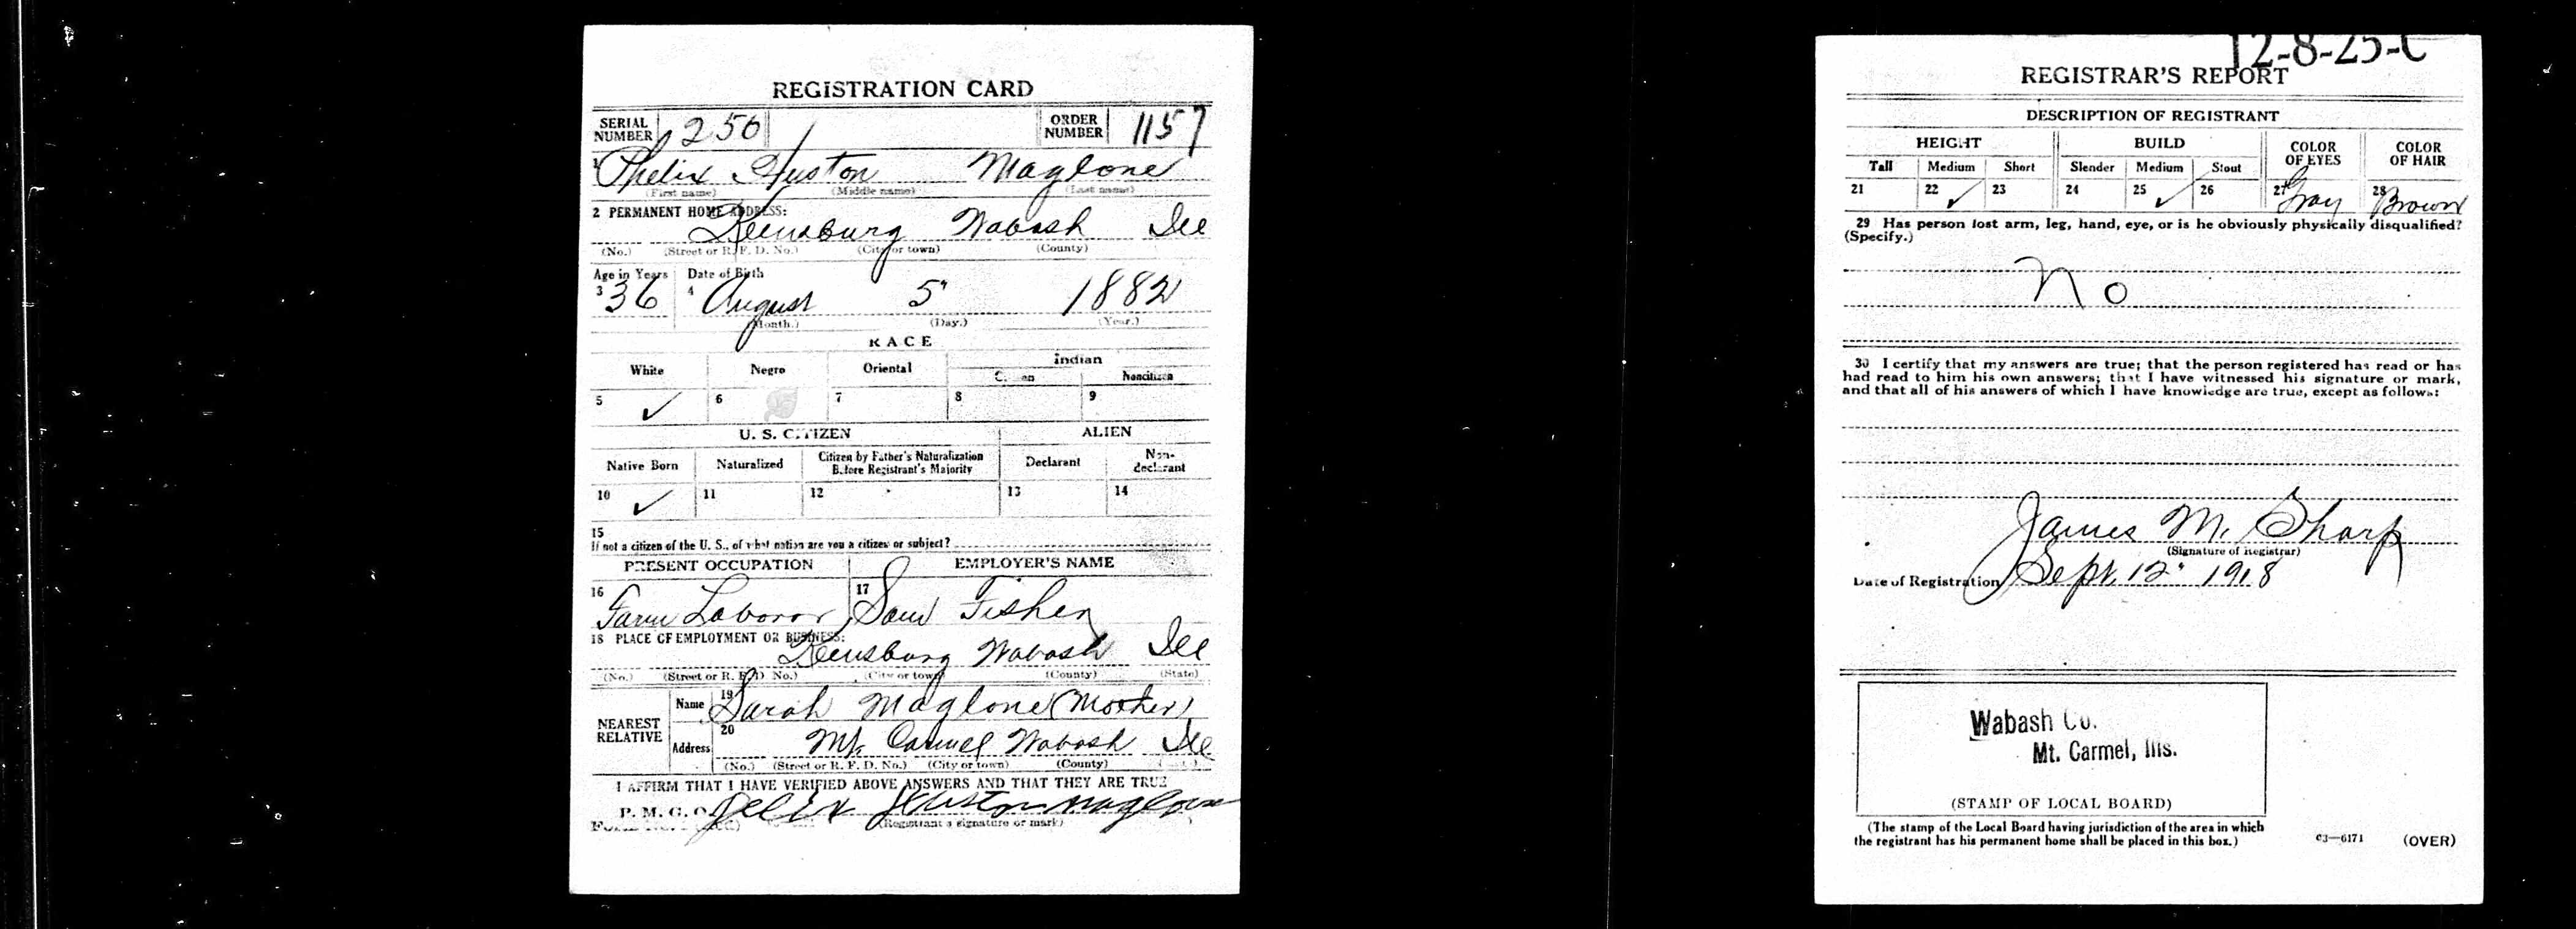 REGISTRATION CARD
SERIAL NUMBER 250 ORDER NUMBER 1157
1 Phelix Huston Maglone
(First name) (Middle name) (Last name)
2 PERMANENT HOME ADDRESS:
Keensburg Wabash Ill
(No.) (Street or R. F. D. No.) (City or town) (County)
Age in Years Date of Birth
3 36 4 August 5" 1882
(Month.) (Day.) (Year.)
RACE
White Negro Oriental Indian
Citizen Noncitizen
5 ✓ 6 7 8 9
U. S. CITIZEN ALIEN
Native Born Naturalized Citizen by Father's Naturalization Before Registrant's Majority Declarant Non-declarant
10 ✓ 11 12 13 14
15
If not a citizen of the U. S., of what nation are you a citizen or subject?
PRESENT OCCUPATION EMPLOYER'S NAME
16 Farm Laboror 17 Sam Fisher
18 PLACE OF EMPLOYMENT OR BUSINESS:
Keensburg Wabash Ill
(No.) (Street or R. F. D. No.) (City or town) (County) (State)
NEAREST RELATIVE Name 19 Sarah Maglone (Mother)
Address 20 Mt. Carmel Wabash Ill
(No.) (Street or R. F. D. No.) (City or town) (County)
I AFFIRM THAT I HAVE VERIFIED ABOVE ANSWERS AND THAT THEY ARE TRUE
P. M. G. O. Felix Huston Maglone
(Registrant's signature or mark)
12-8-25-C
REGISTRAR'S REPORT
DESCRIPTION OF REGISTRANT
HEIGHT BUILD COLOR OF EYES COLOR OF HAIR
Tall Medium Short Slender Medium Stout
21 22 ✓ 23 24 25 ✓ 26 27 Gray 28 Brown
29 Has person lost arm, leg, hand, eye, or is he obviously physically disqualified?
(Specify.)
No
30 I certify that my answers are true; that the person registered has read or has
had read to him his own answers; that I have witnessed his signature or mark,
and that all of his answers of which I have knowledge are true, except as follows:
James M. Sharp
(Signature of Registrar)
Date of Registration Sept. 12" 1918
Wabash Co.
Mt. Carmel, Ills.
(STAMP OF LOCAL BOARD)
(The stamp of the Local Board having jurisdiction of the area in which
the registrant has his permanent home shall be placed in this box.)
03—6171 (OVER)